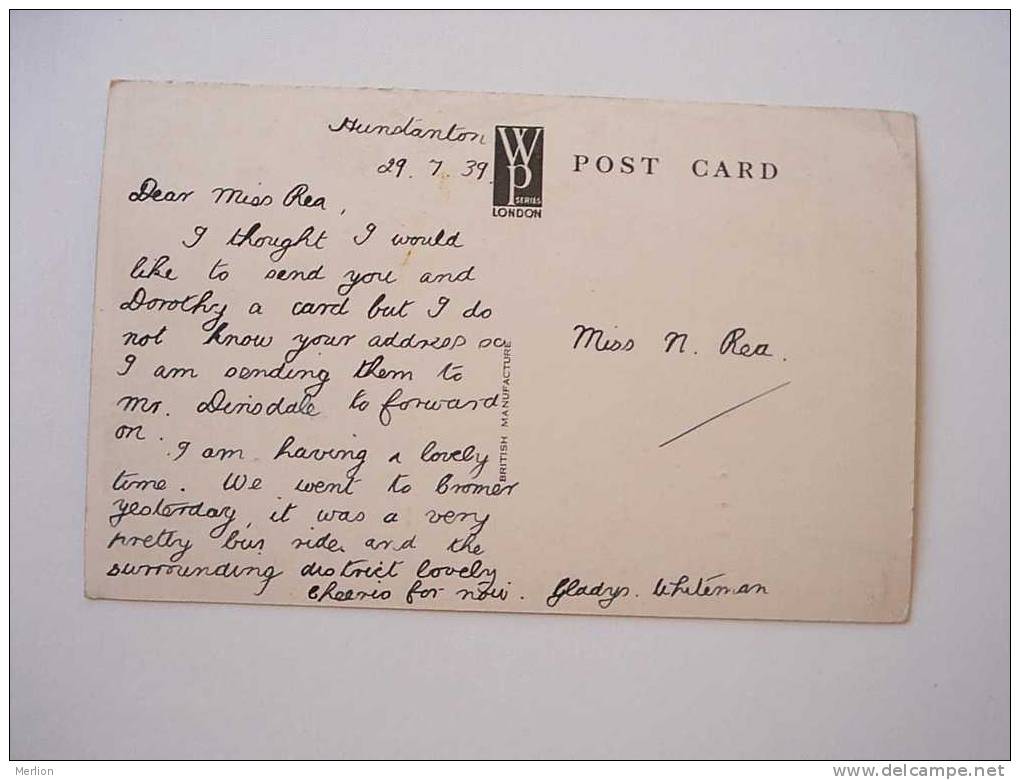 Hunstanton
29. 7. 39.
Dear Miss Rea,
I thought I would
like to send you and
Dorothy a card but I do
not know your address so
I am sending them to
Mr. Dinsdale to forward
on.
I am having a lovely
time. We went to Cromer
yesterday, it was a very
pretty bus ride and the
surrounding district lovely
Cheerio for now. Gladys. Whiteman
WP
SERIES
LONDON
POST CARD
BRITISH MANUFACTURE
Miss N. Rea.
Merlion
www.delcampe.net